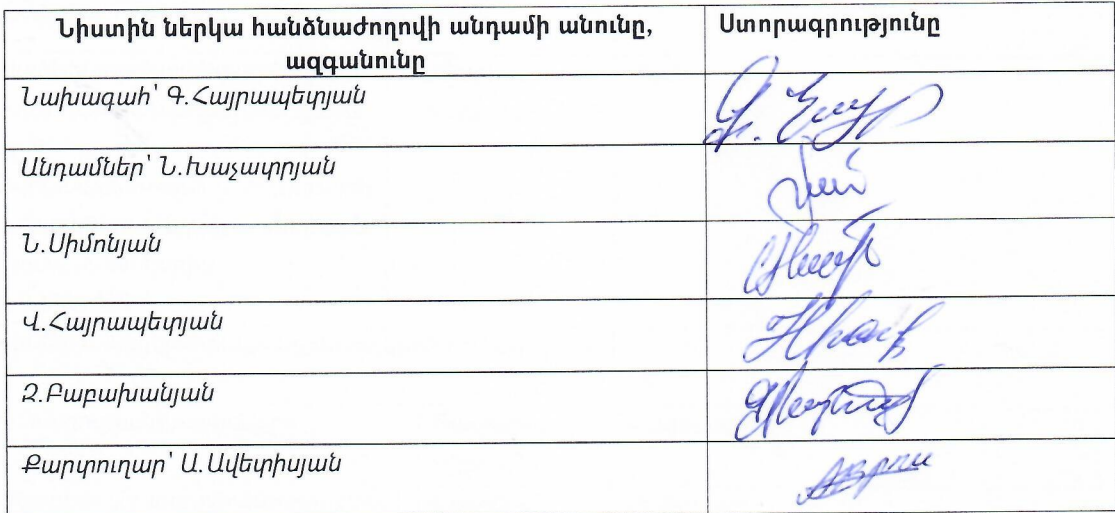 Նիստին ներկա հանձնաժողովի անդամի անունը, ազգանունը
Ստորագրությունը
Նախագահ՝ Գ.Հայրապետյան
Անդամներ՝ Ն.Խաչատրյան
Ն.Սիմոնյան
Վ.Հայրապետյան
Զ.Բաբախանյան
Քարտուղար՝ Ա.Ավետիսյան